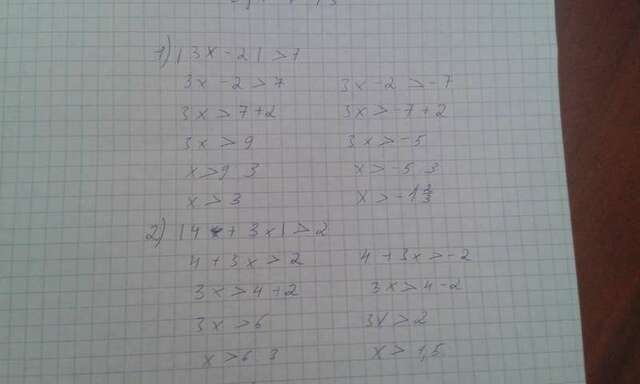 1) |3x - 2| > 7
3x - 2 > 7 3x - 2 > -7
3x > 7 + 2 3x > -7 + 2
3x > 9 3x > -5
x > 9 3 x > -5 3
x > 3 x > -1 2/3
2) |4 + 3x| > 2
4 + 3x > 2 4 + 3x > -2
3x > 4 + 2 3x > 4 - 2
3x > 6 3x > 2
x > 6 3 x > 1,5